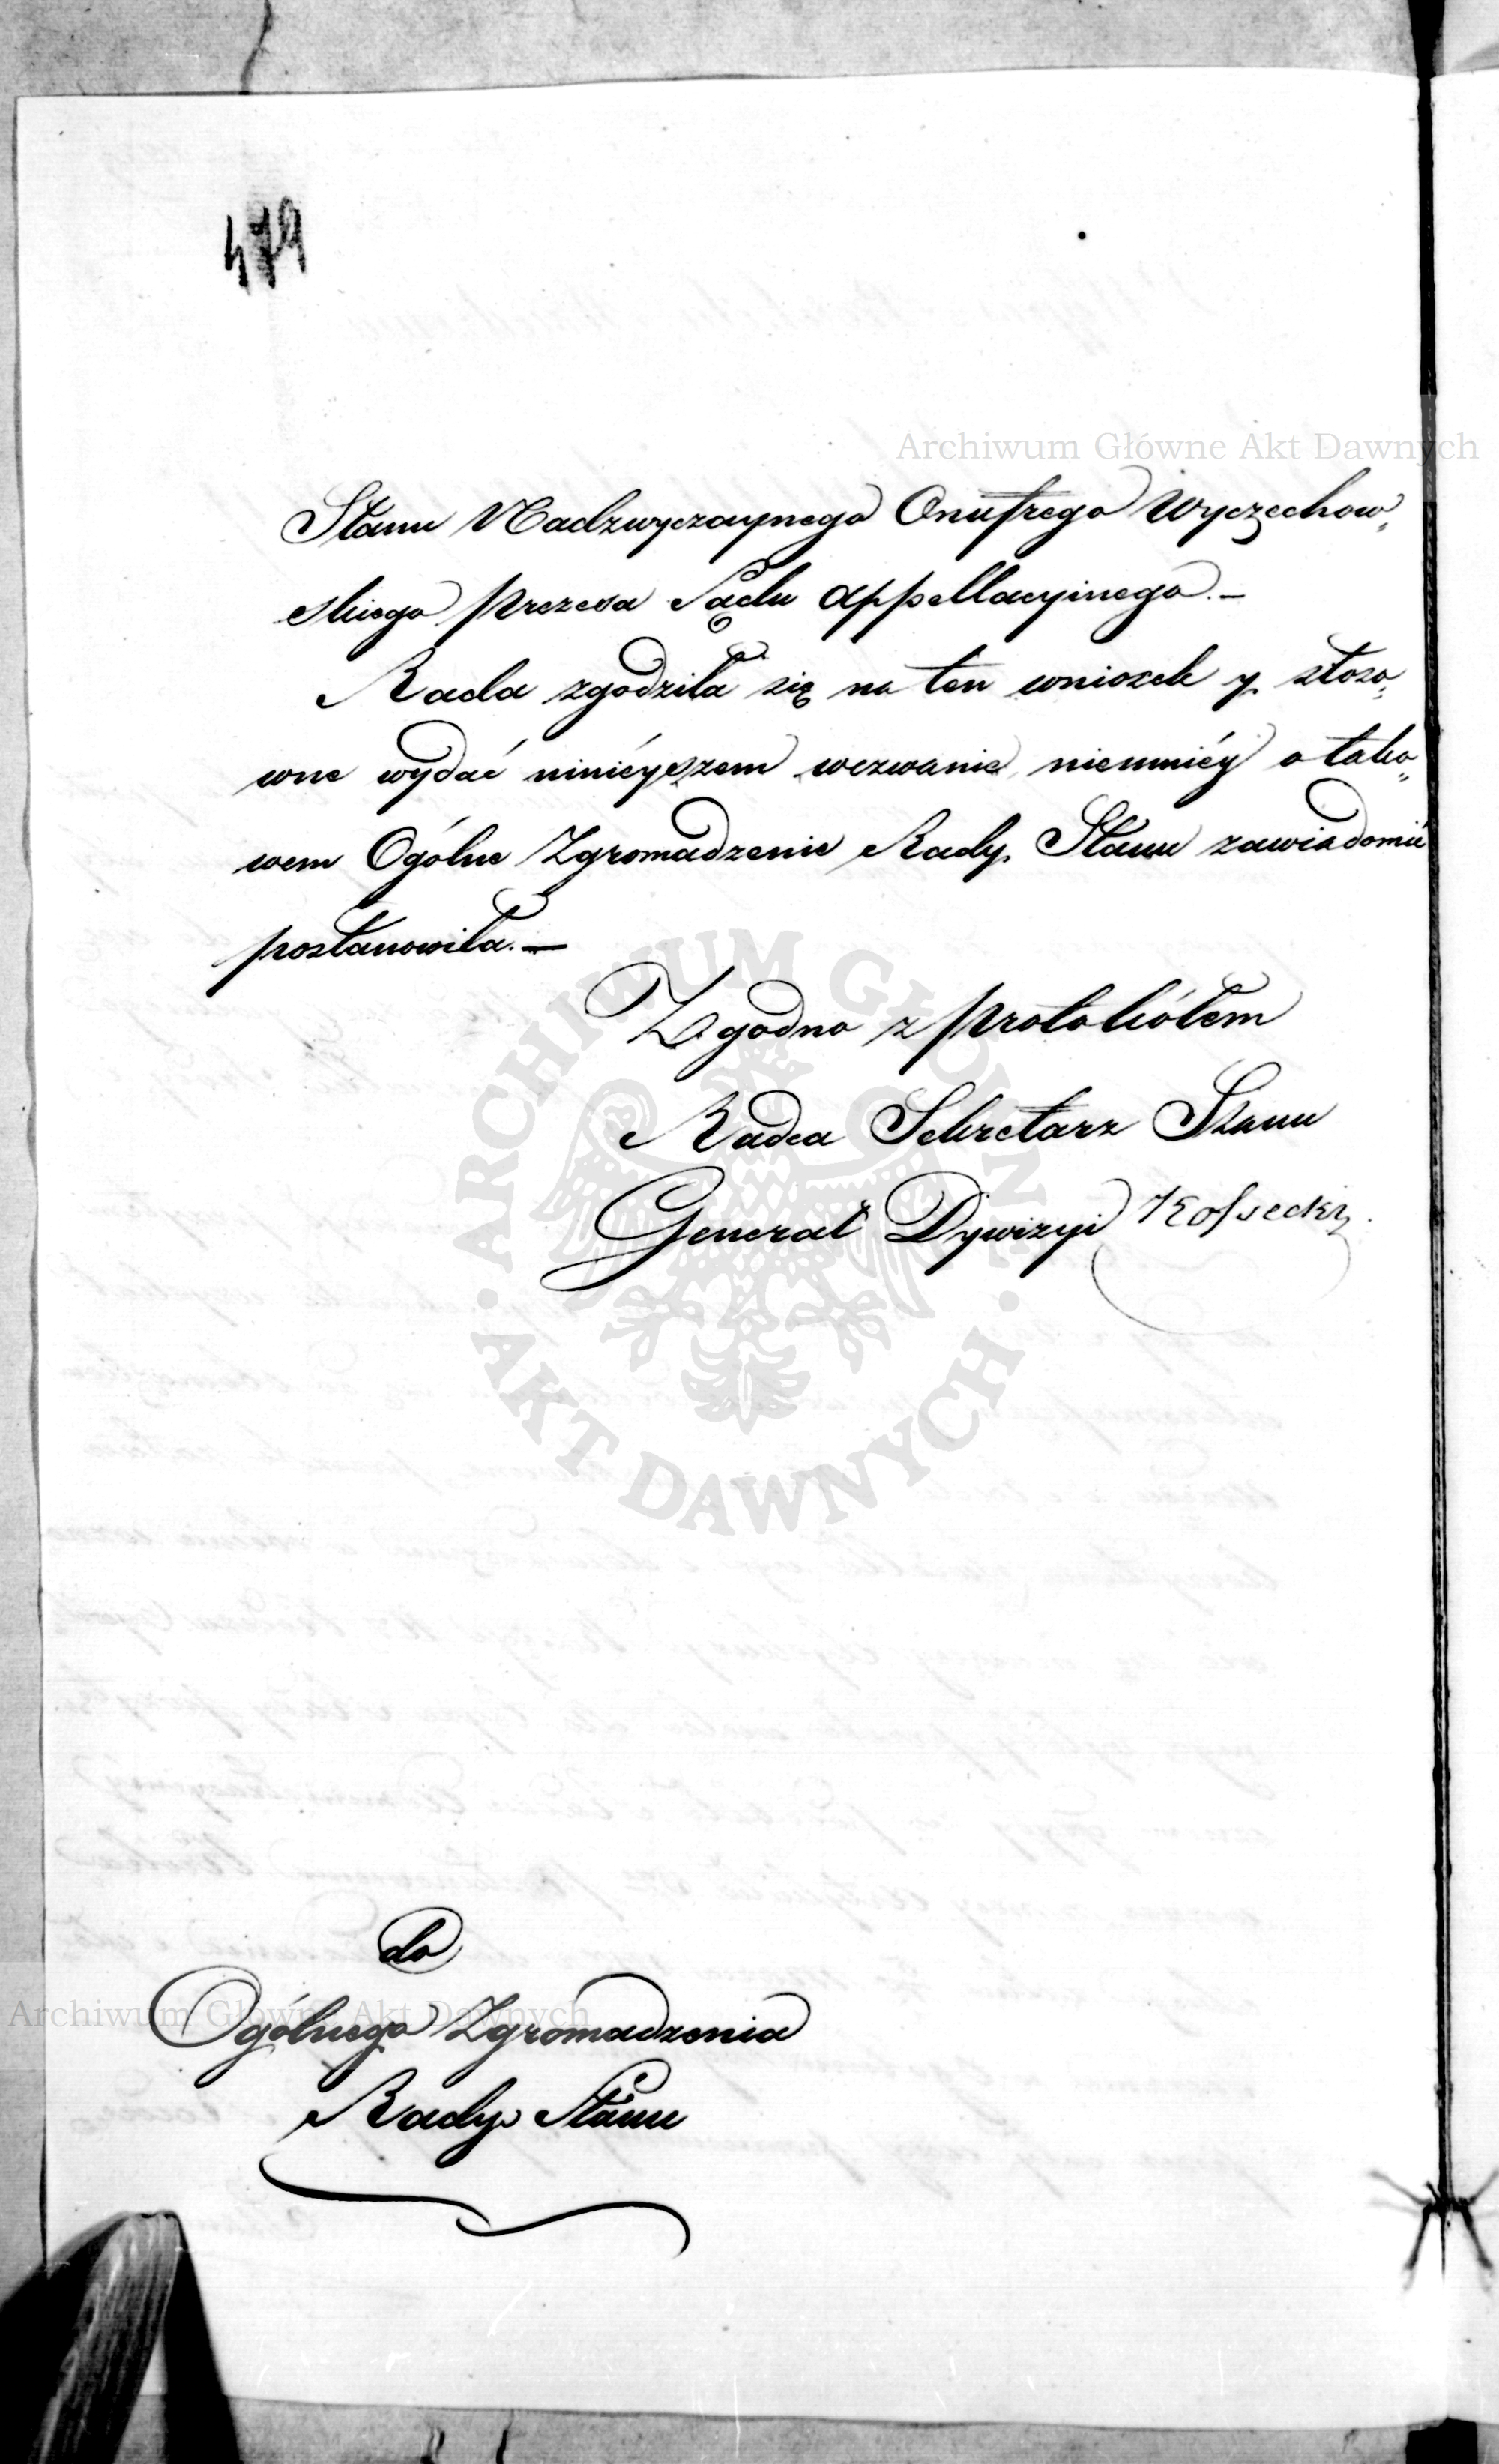 479
Archiwum Główne Akt Dawnych
Stanu Nadzwyczaynego Onufrego Wyczechow„
skiego Prezesa Sądu Appellacyinego.—
Rada zgodziła się na ten wniosek y stoso„
wne wydać ninieyszem wezwanie, niemniéy o tako„
wem Ogólne Zgromadzenie Rady Stanu zawiadomić
postanowiła.—
Zgodno z Protokółem
Radca Sekretarz Stanu
Generał Dywizyi Kossecki
ARCHIWUM GŁÓWNE
AKT DAWNYCH
do
Ogólnego Zgromadzenia
Archiwum Główne Akt Dawnych
Rady Stanu